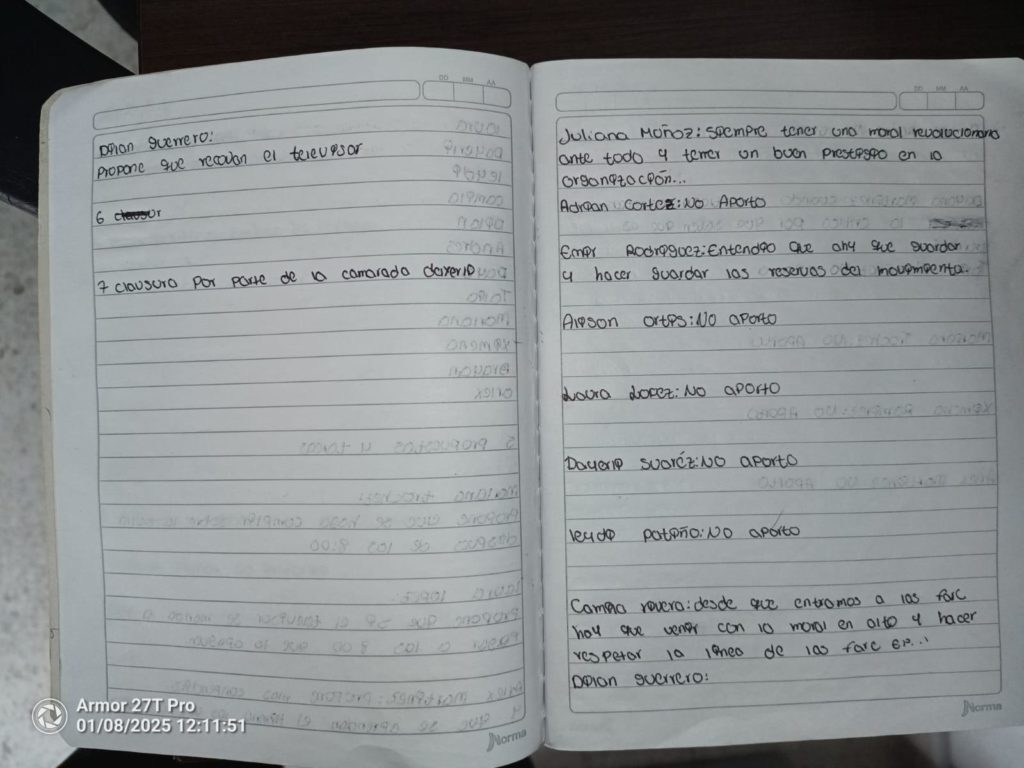 DD MM AA
Dilan guerrero:
Propone que recojan el televisor
6 clausur
7 clausura por parte de la camarada dayerli
DD MM AA
Juliana Muñoz: siempre tener una moral revolucionaria
ante todo y tener un buen prestigio en la
organización...
Adrian Cortez: No Aporto
Emir Rodriguez: Entendio que ahy que guardar
y hacer guardar las reservas del movimiento.
Aleison ortis: No aporto
Laura Lopez: No aporto
Dayerli suaréz: No aporto
leydi patiño: No aporto
Camila rivera: desde que entramos a las farc
hay que venir con la moral en alto y hacer
respetar la linea de las farc EP...
Dilan guerrero:
Norma
Norma
Armor 27T Pro
01/08/2025 12:11:51